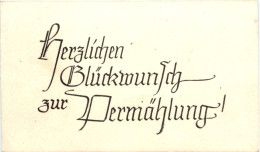 Herzlichen
Glückwunsch
zur Vermählung!